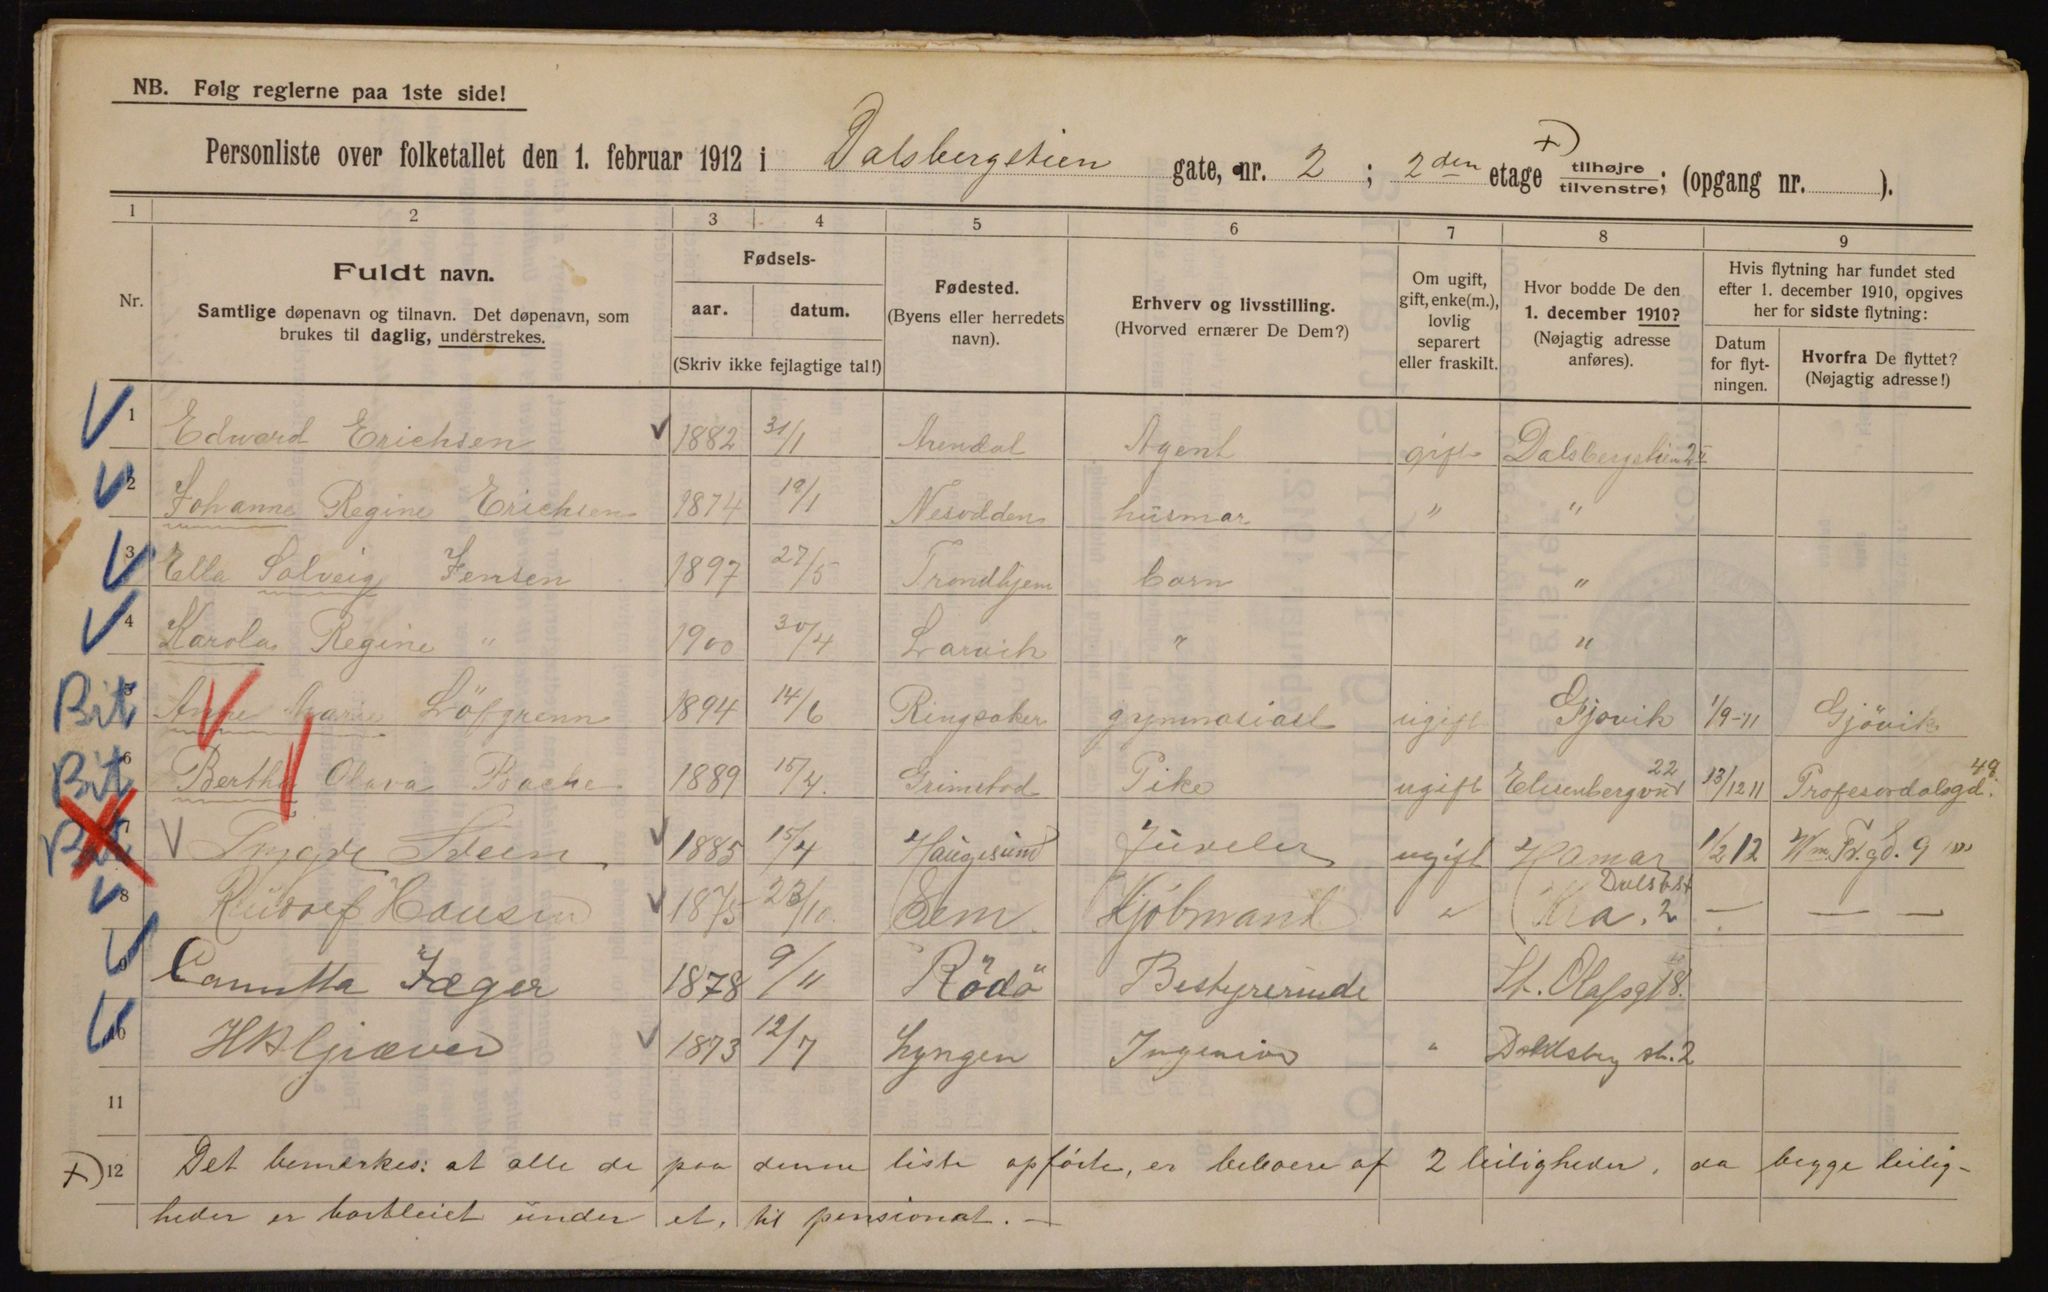 NB. Følg reglerne paa 1ste side!
Personliste over folketallet den 1. februar 1912 i Dalsbergstien gate, nr. 2 ; 2den etage +) tilhøjre/tilvenstre; (opgang nr. ).
1 2 3 4 5 6 7 8 9
Nr.
Fuldt navn.
Samtlige døpenavn og tilnavn. Det døpenavn, som
brukes til daglig, understrekes.
Fødsels-
aar. datum.
(Skriv ikke fejlagtige tal!)
Fødested.
(Byens eller herredets
navn).
Erhverv og livsstilling.
(Hvorved ernærer De Dem?)
Om ugift,
gift, enke(m.),
lovlig
separert
eller fraskilt.
Hvor bodde De den
1. december 1910?
(Nøjagtig adresse
anføres).
Hvis flytning har fundet sted
efter 1. december 1910, opgives
her for sidste flytning:
Datum
for flyt-
ningen.
Hvorfra De flyttet?
(Nøjagtig adresse!)
1 Edward Erichsen 1882 31/1 Arendal Agent gift Dalsbergstien 2 II
2 Johanne Regine Erichsen 1874 19/1 Nesodden husmor " "
3 Ella Solveig Jensen 1897 27/5 Trondhjem barn "
4 Karola Regine " 1900 30/4 Larvik " "
Bit 5 Anne Marie Löfgrenn 1894 14/6 Ringsaker gymnasiast ugift Gjøvik 1/9-11 Gjövik
Bit 6 Berthe Olava Bache 1889 15/4. Grimstad Pike ugift Elisenbergvei 22 13/12 11 Profesordalsgd. 49.
Bit 7 Yngve Steen 1885 15/4 Haugesund Juveler ugift Hamar 1/2 12 Wm. Fr. gd. 9
8 Rudolf Hansen 1875 23/10. Sem Kjöbmand " Kra. Dalsb.st 2 — — —
9 Camitta Jæger 1878 9/11 Rödö Bestyrerinde St. Olafsgt 8.
10 H A Gjæver 1873 12/7 Lyngen Ingeniør " Dalsberg st. 2
11
+) 12 Det bemerkes: at alle de paa denne liste opförte, er beboere af 2 leiligheder, da begge leilig-
heder er bortleiet under et, til pensionat. —